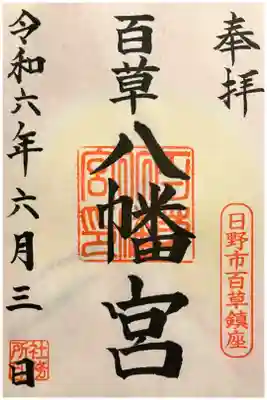 奉拝
日野市百草鎮座
百草
八幡宮
令和六年六月三日
社務所